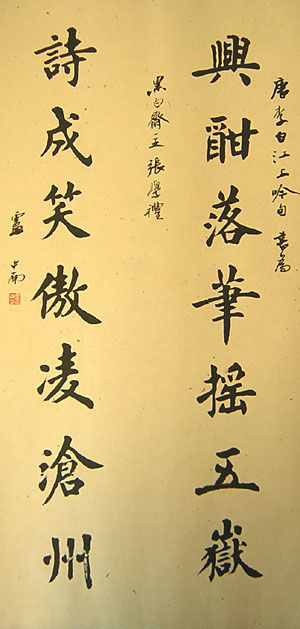 唐李白江上吟句 書為
興酣落筆摇五嶽
黑白齋主張學禮
詩成笑傲凌滄州
盧中南